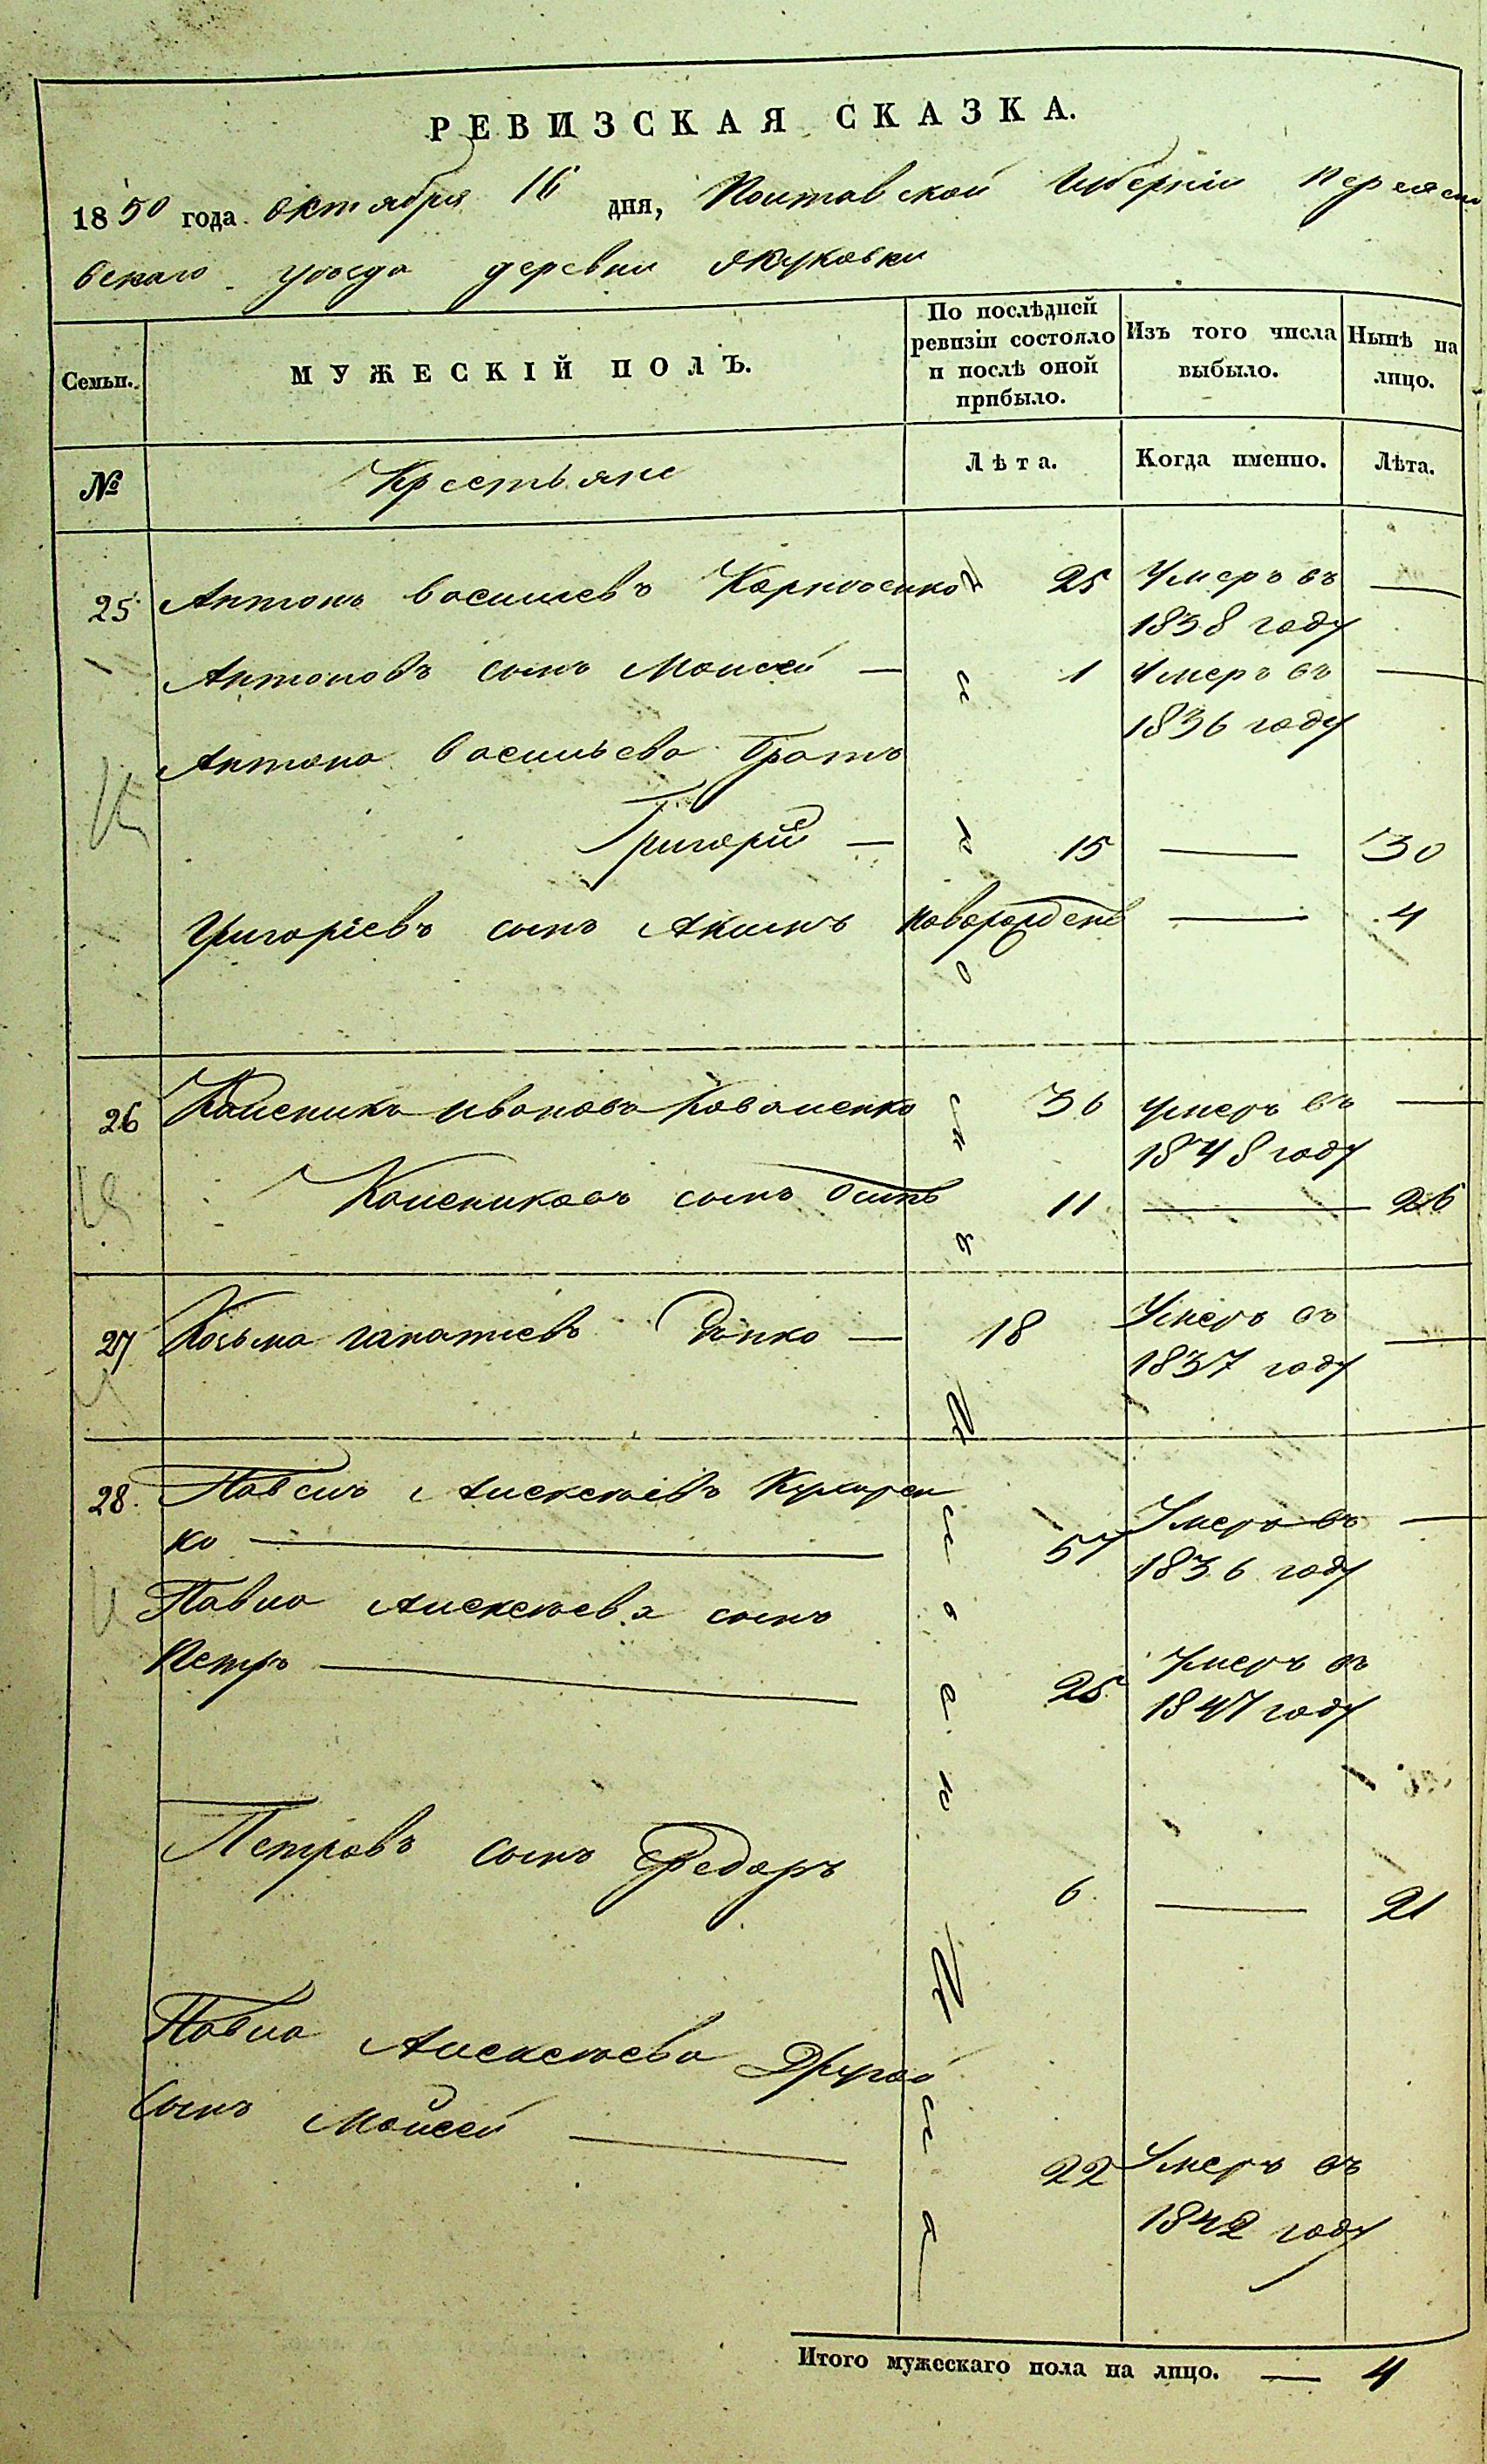 РЕВИЗСКАЯ СКАЗКА.
1850 года октября 16 дня, Полтавской Губерніи Переясла
вскаго уѣзда деревни Яцуковки
Семьи. МУЖЕСКІЙ ПОЛЪ. По послѣдней ревизіи состояло и послѣ оной прибыло. Изъ того числа выбыло. Нынѣ на лицо.
№ Крестьяне Лѣта. Когда именно. Лѣта.
25 Антонъ Васильевъ 25 Умеръ въ —
1838 году
Антоновъ сынъ Моисей — 1 Умеръ въ —
1836 году
Антона Васильева братъ
Григорій — 15 — 30
Григоріевъ сынъ Акимъ новорожденъ — 4
26 Каленикъ Ивановъ Коваленко 36 умеръ въ —
1848 году
Калениковъ сынъ Осипъ 11 — 26
27 Козьма Игнатіевъ — 18 Умеръ въ —
1837 году
28. Павелъ Алексѣевъ Кучерен
ко — 57 Умеръ въ —
1836 году
Павла Алексѣева сынъ
Петръ — 25 Умеръ въ
1847 году
Петровъ сынъ Федоръ
6. — 21
Павла Алексѣева Другой
сынъ Моисей — 22 Умеръ въ
1842 году
Итого мужескаго пола на лицо. — 4